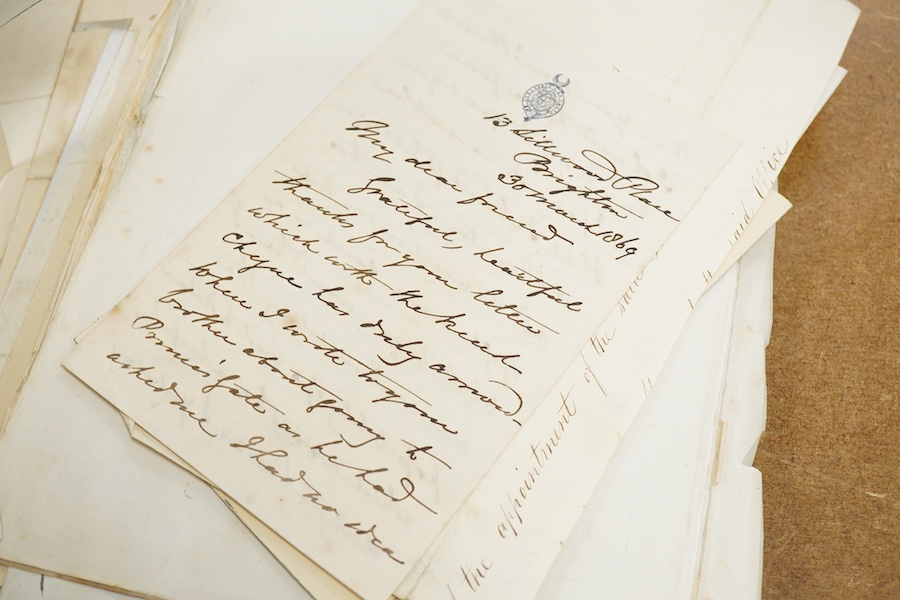 13 Sillwood Place
Brighton
30 March 1869
My dear friend
Grateful, heartful
thanks for your letter
which with the kind
cheque has duly arrived
When I wrote to your
brother about going to
Prince's Gate as he had
asked me I had no idea
the appointment of the said
said Office